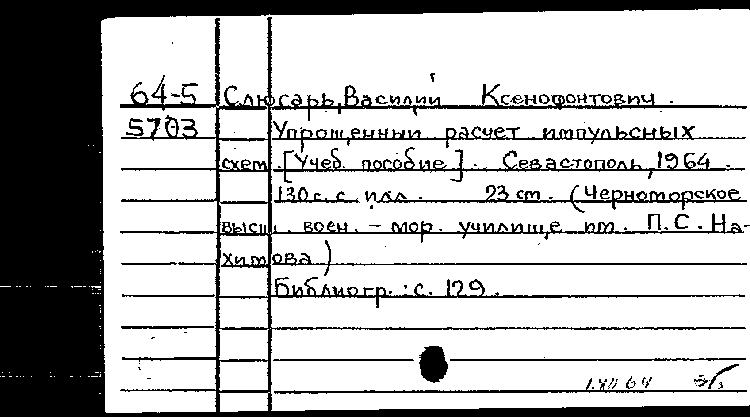 64-5 Слюсарь, Василий Ксенофонтович.
5703 Упрощенный расчет импульсных
схем. [Учеб. пособие]. Севастополь, 1964.
130 с. с илл. 23 см. (Черноморское
высш. воен.-мор. училище им. П.С. На-
химова)
Библиогр.: с. 129.